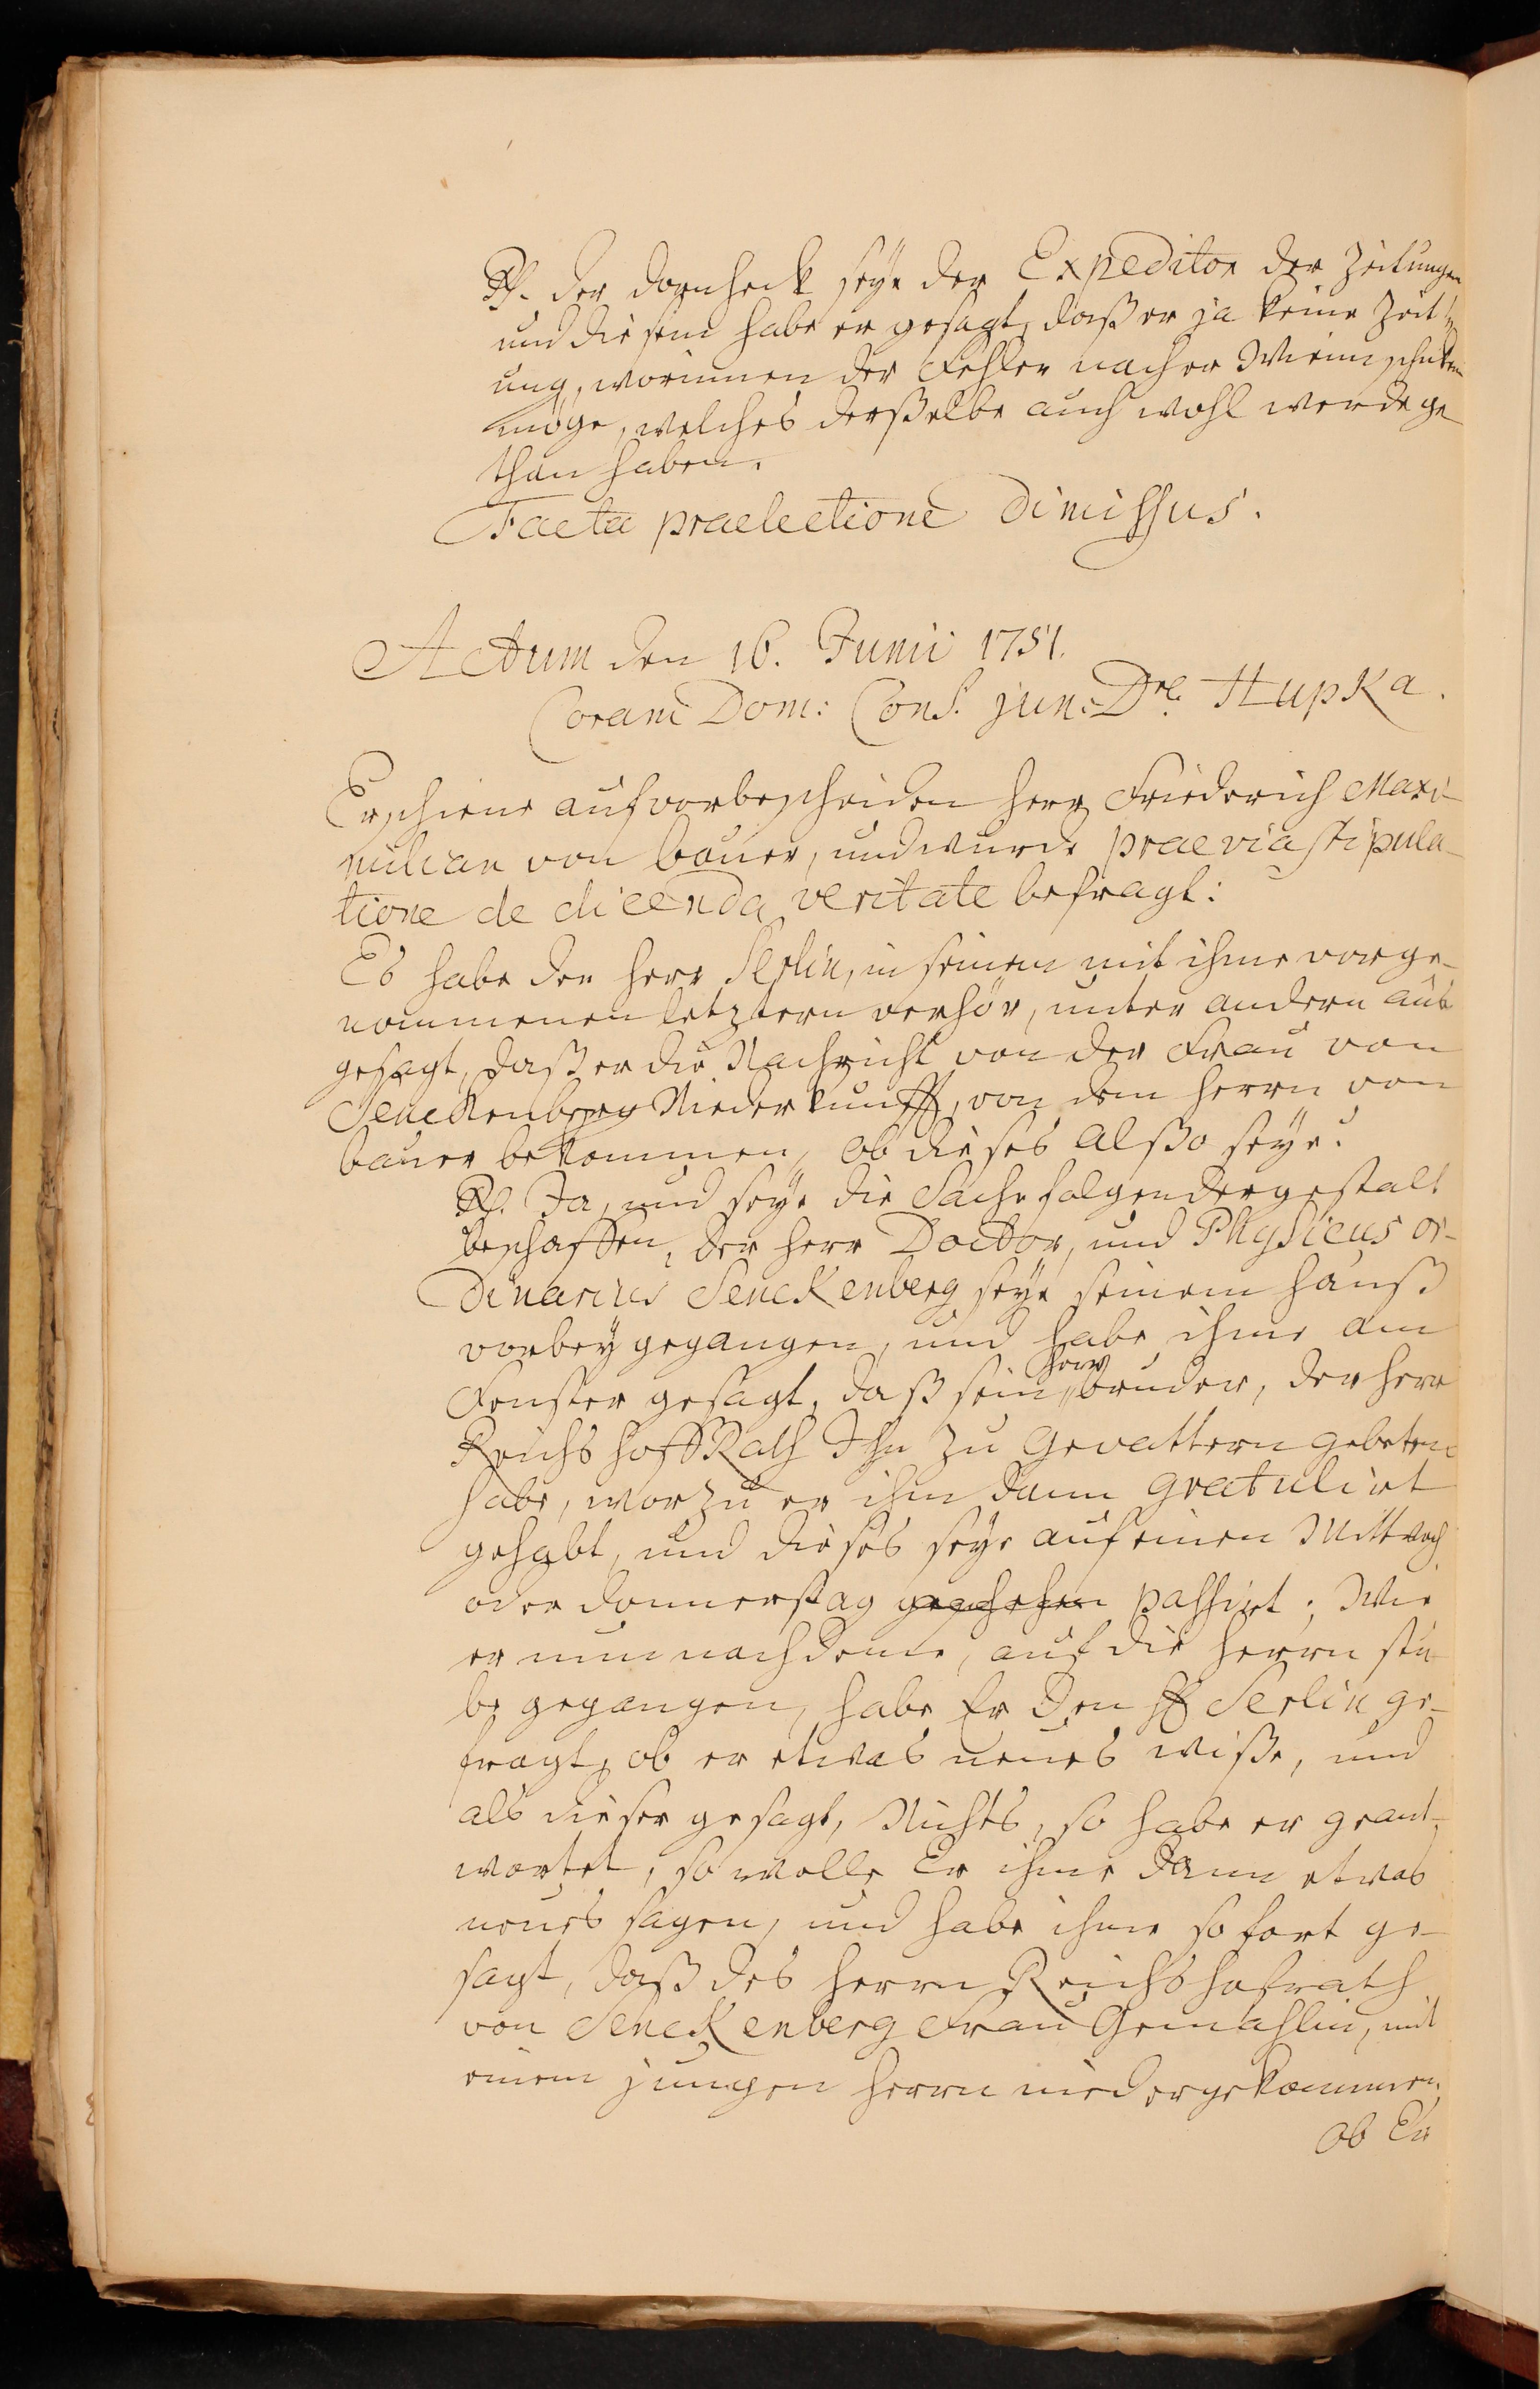 Rs. der Dornheck seye der Expeditor der Zeitungen
und diesem habe er gesagt, daß er ja keine Zeit-
ung, worinnen der Fehler nacher Wienn schicken
möge, welches derßelbe auch wohl werde ge
than haben.
Facta praelectione dimissus.
Actum den 16. Junii 1751.
Coram Dom: Cons. jun: Dre. Hupka.
Erschiene auf vorbescheiden Herr Friederich Maxi-
milian von bauer, und wurde praevia stipula-
tione de dicenda veritate befragt:
Es habe der Herr Serlin, in seinem mit ihme vorge-
nommenen letztern verhör, unter andern aus
gesagt, daß er die Nachricht von der Frau von
Senckenberg Niederkunfft, von dem Herrn von
bauer bekommen, ob dieses alßo seye?
Rs. Ja, und seye die Sache folgendergestalt
beschaffen, der Herr Doctor, und Physicus or-
dinarius Senckenberg seye seinem Hauß
vorbey gegangen, und habe ihme am
Fenster gesagt, daß sein Herr bruder, der Herr
Reichs Hoff Rath Ihn zu Gevattern gebeten
habe, worzu er ihm dann gratulirt
gehabt, und dieses seye auf einen Mittwoch
oder Donnerstag geschehen passirt; Wie
er nun nach deme, auf die Herrn stu-
be gegangen, habe Er den H Serlin ge-
fragt, ob er etwas neues wiße, und
als dieser gesagt, Nichts, so habe er geant-
wortet, so wolle Er ihme dann etwas
neues sagen, und habe ihme so fort ge-
sagt, daß des Herrn Reichs hofrath
von Senckenberg Frau Gemahlin, mit
einem jungen Herrn niedergekommen.
Ob Er